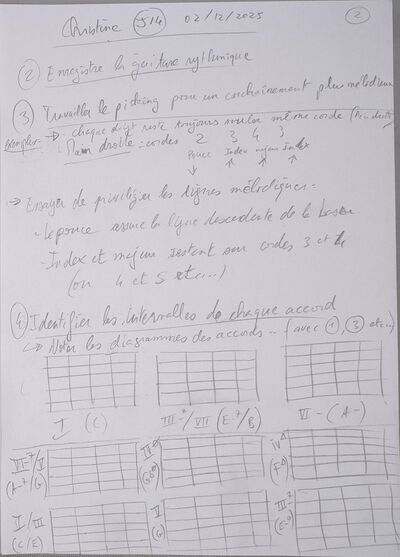 Christine J14 02/12/2025 2
2 Enregistre la guitare rythmique
3 Travailler le picking pour un enchaînement plus mélodieux
Exemple: -> - chaque doigt reste toujours sur la même corde
Main droite = cordes 2 3 4 3
Pouce Index majeur Index
-> Essayer de privilégier les lignes mélodiques =
- Le pouce assure la ligne descendante de la basse
- Index et majeur restent sur cordes 3 et 4
(ou 4 et 5 etc...)
4 Identifier les intervalles de chaque accord
-> Noter les diagrammes des accords... (avec 1, 3 etc...)
I (C) III-7/VII (E-7/B) VI-(A-)
VI-7/V (A-7/G) IV Δ (FΔ)
I/III (C/E) V (G) III-7 (E-7)